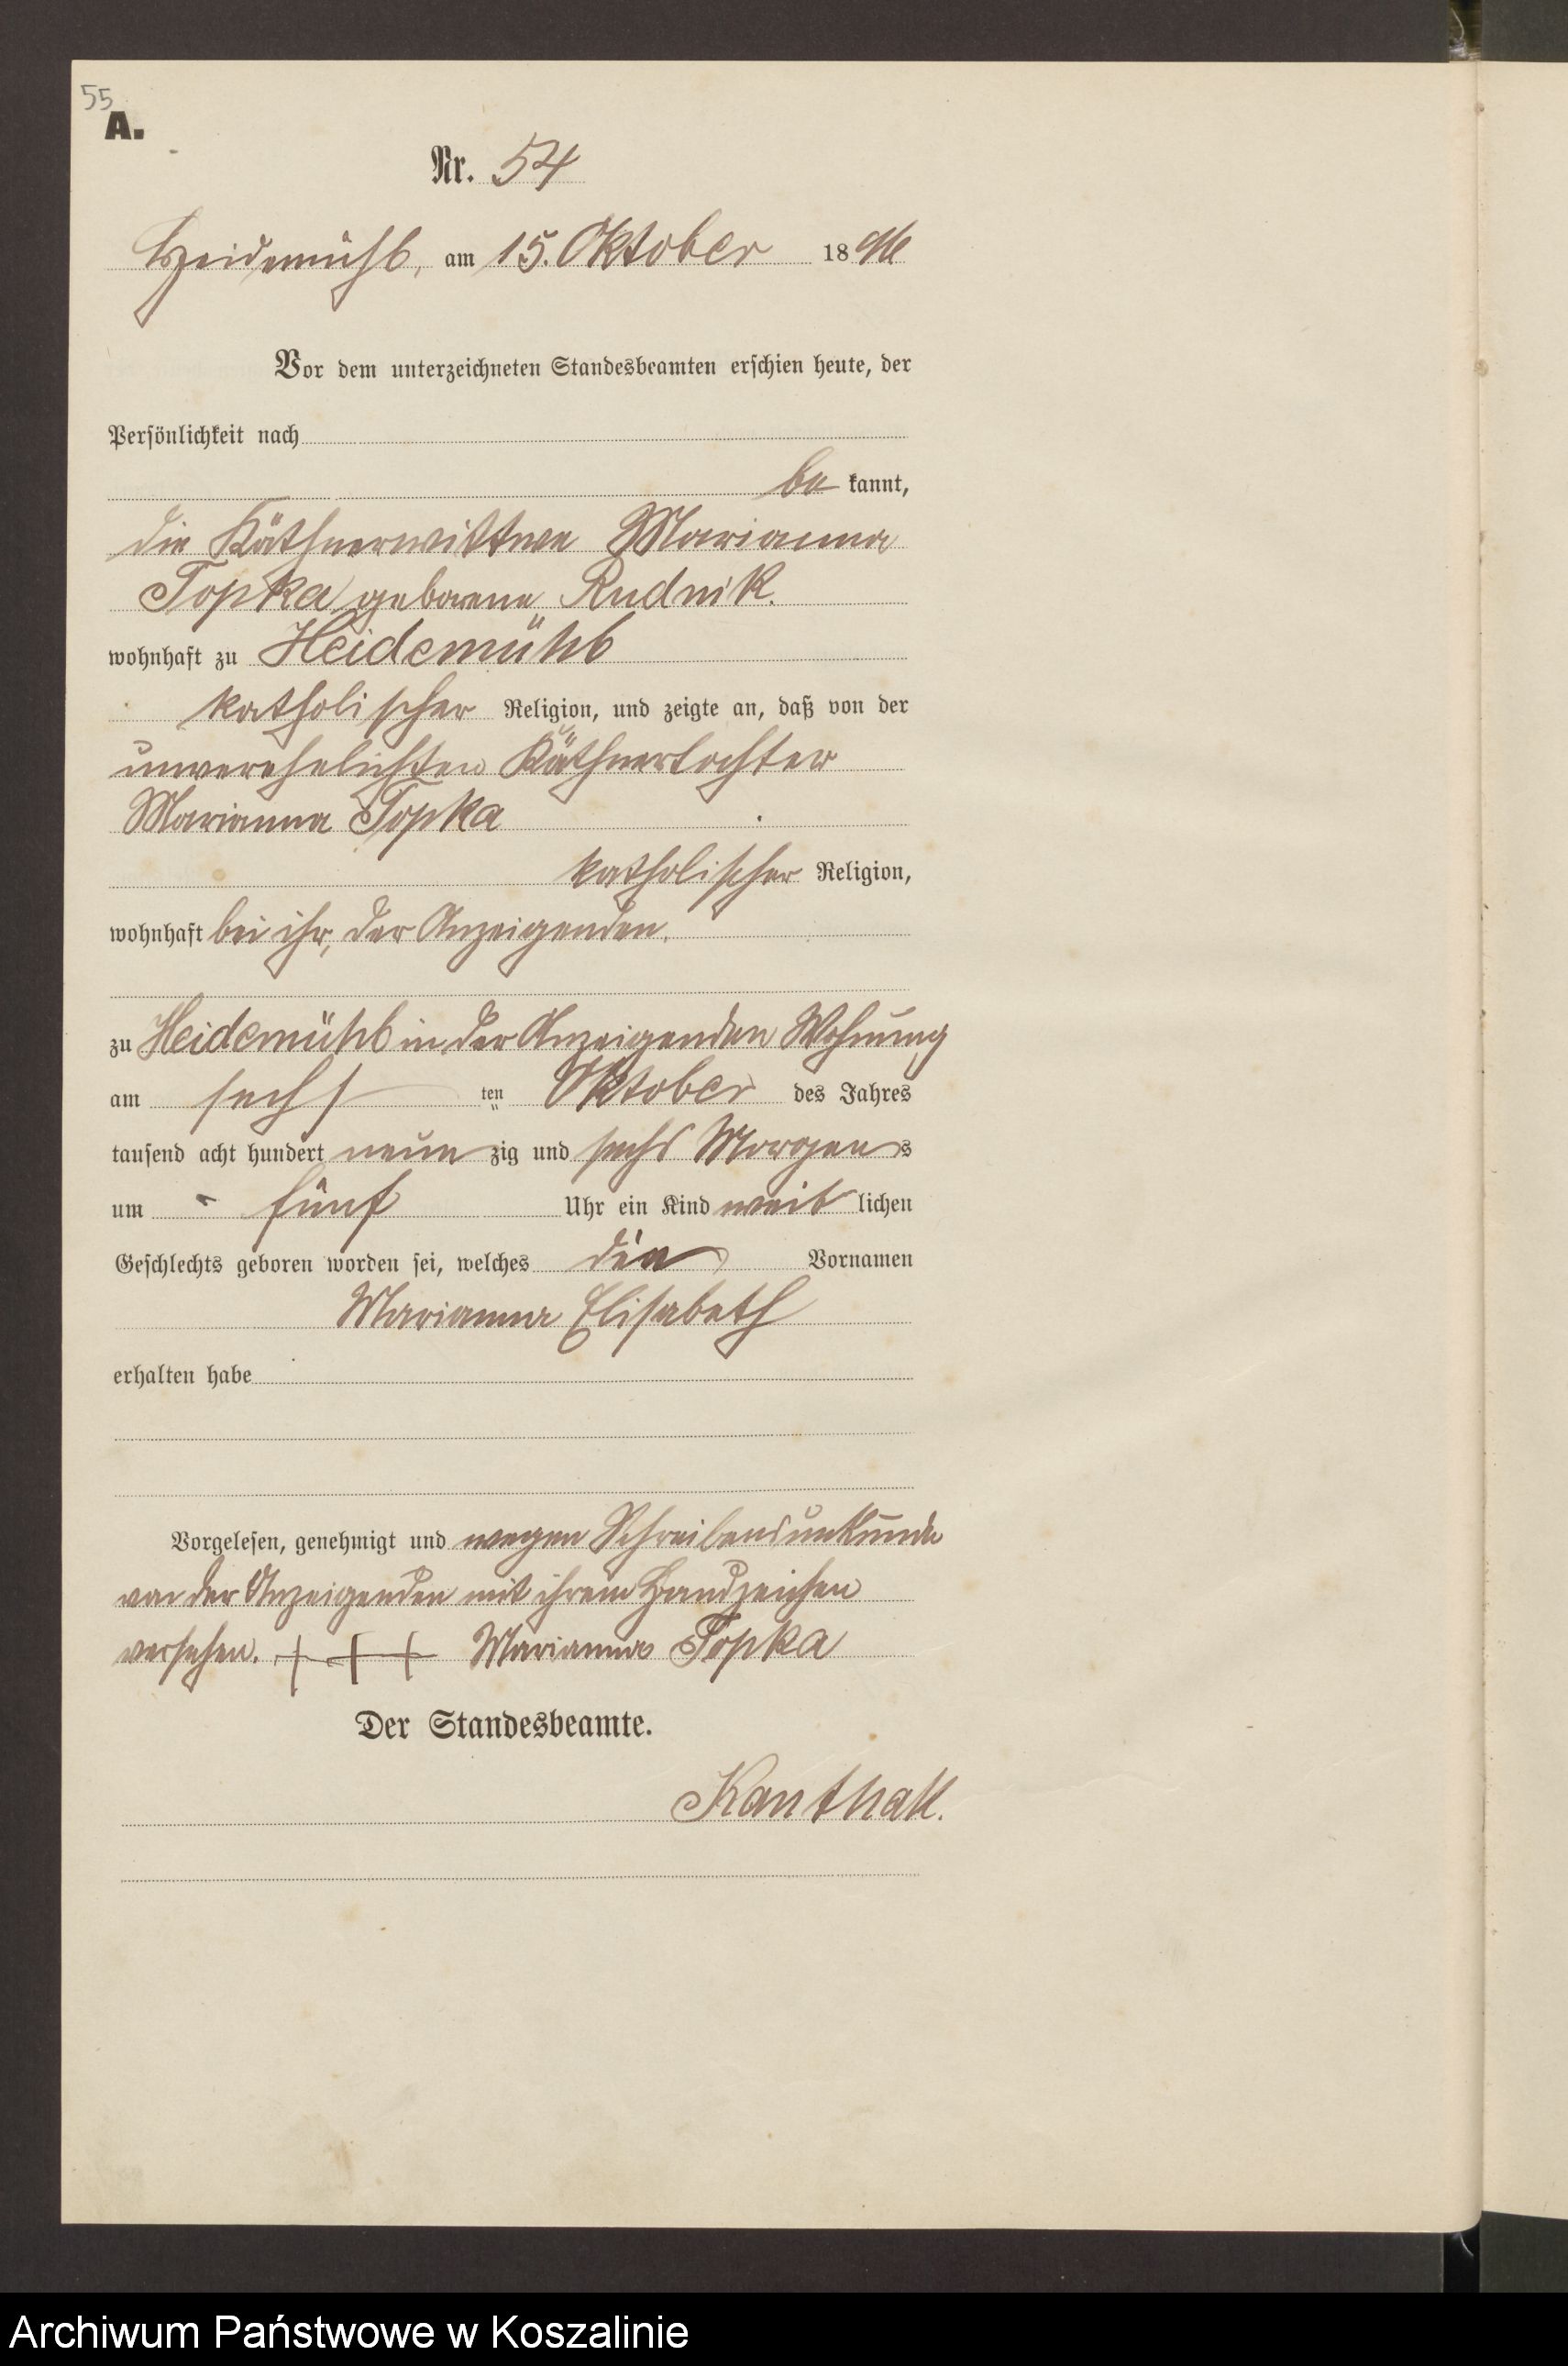 55
A.
Nr. 54
Heidemühl, am 15. Oktober 1896
Vor dem unterzeichneten Standesbeamten erschien heute, der
Persönlichkeit nach
be kannt,
die Käthnerwittwe Marianna
Topka geborene Rudnik.
wohnhaft zu Heidemühl
katholischer Religion, und zeigte an, daß von der
unverehelichten Käthnertochter
Marianna Topka
katholischer Religion,
wohnhaft bei ihr, der Anzeigenden.
zu Heidemühl in der Anzeigenden Wohnung
am sechs ten Oktober des Jahres
tausend acht hundert neun zig und sechs Morgens
um fünf Uhr ein Kind weib lichen
Geschlechts geboren worden sei, welches die Vornamen
Marianna Elisabeth
erhalten habe
Vorgelesen, genehmigt und wegen Schreibensunkunde
von der Anzeigenden mit ihrem Handzeichen
versehen. + + + Marianna Topka
Der Standesbeamte.
Kanthak.
Archiwum Państwowe w Koszalinie